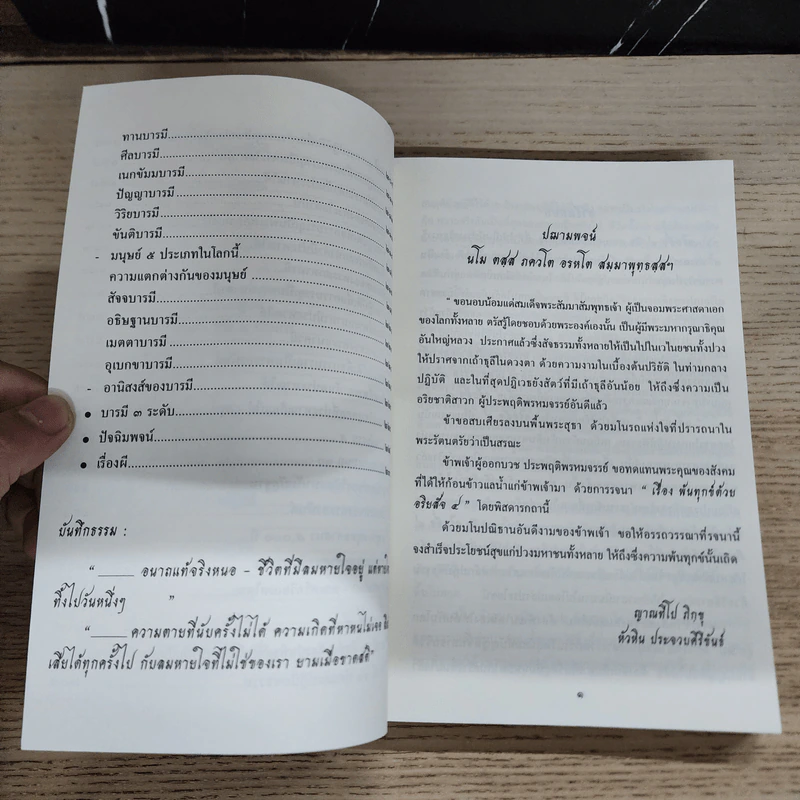 ทานบารมี
ศีลบารมี
เนกขัมมบารมี
ปัญญาบารมี
วิริยบารมี
ขันติบารมี
- มนุษย์ ๕ ประเภทในโลกนี้
ความแตกต่างกันของมนุษย์
สัจจบารมี
อธิษฐานบารมี
เมตตาบารมี
อุเบกขาบารมี
- อานิสงส์ของบารมี
● บารมี ๓ ระดับ
● ปัจฉิมพจน์
● เรื่องผี
บันทึกธรรม :
“____ อนาถแท้จริงหนอ - ชีวิตที่มีลมหายใจอยู่
ทิ้งไปวันหนึ่งๆ ”
“____ ความตายที่นับครั้งไม่ได้ ความเกิดที่หาหนไม่เจอ
เสียได้ทุกครั้งไป กับลมหายใจที่ไม่ใช่ของเรา ยามเมื่อขาดสติ”
ปฌามพจน์
นโม ตสฺส ภควโต อรหโต สมฺมาพุทธสฺสฯ
“ ขอนอบน้อมแด่สมเด็จพระสัมมาสัมพุทธเจ้า ผู้เป็นจอมพระศาสดาเอก
ของโลกทั้งหลาย ตรัสรู้โดยชอบด้วยพระองค์เองนั้น เป็นผู้มีพระมหากรุณาธิคุณ
อันใหญ่หลวง ประกาศแล้วซึ่งสัจธรรมทั้งหลายให้เป็นไปในเวไนยชนทั้งปวง
ให้ปราศจากเถ้าธุลีในดวงตา ด้วยความงามในเบื้องต้นปริยัติ ในท่ามกลาง
ปฏิบัติ และในที่สุดปฏิเวธยังสัตว์ที่มีเถ้าธุลีอันน้อย ให้ถึงซึ่งความเป็น
อริยชาติสาวก ผู้ประพฤติพรหมจรรย์อันดีแล้ว
ข้าขอสบเศียรลงบนพื้นพระสุธา ด้วยมโนรถแห่งใจที่ปรารถนาใน
พระรัตนตรัยว่าเป็นสรณะ
ข้าพเจ้าผู้ออกบวช ประพฤติพรหมจรรย์ ขอทดแทนพระคุณของสังคม
ที่ได้ให้ก้อนข้าวแลน้ำแก่ข้าพเจ้ามา ด้วยการรจนา “ เรื่อง พ้นทุกข์ด้วย
อริยสัจ ๔ ” โดยพิสดารกถานี้
ด้วยมโนปณิธานอันดีงามของข้าพเจ้า ขอให้อรรถวรรณาที่รจนานี้
จงสำเร็จประโยชน์สุขแก่ปวงมหาชนทั้งหลาย ให้ถึงซึ่งความพ้นทุกข์นั้นเถิด
ญาณทีโป ภิกฺขุ
หัวหิน ประจวบคีรีขันธ์
๑